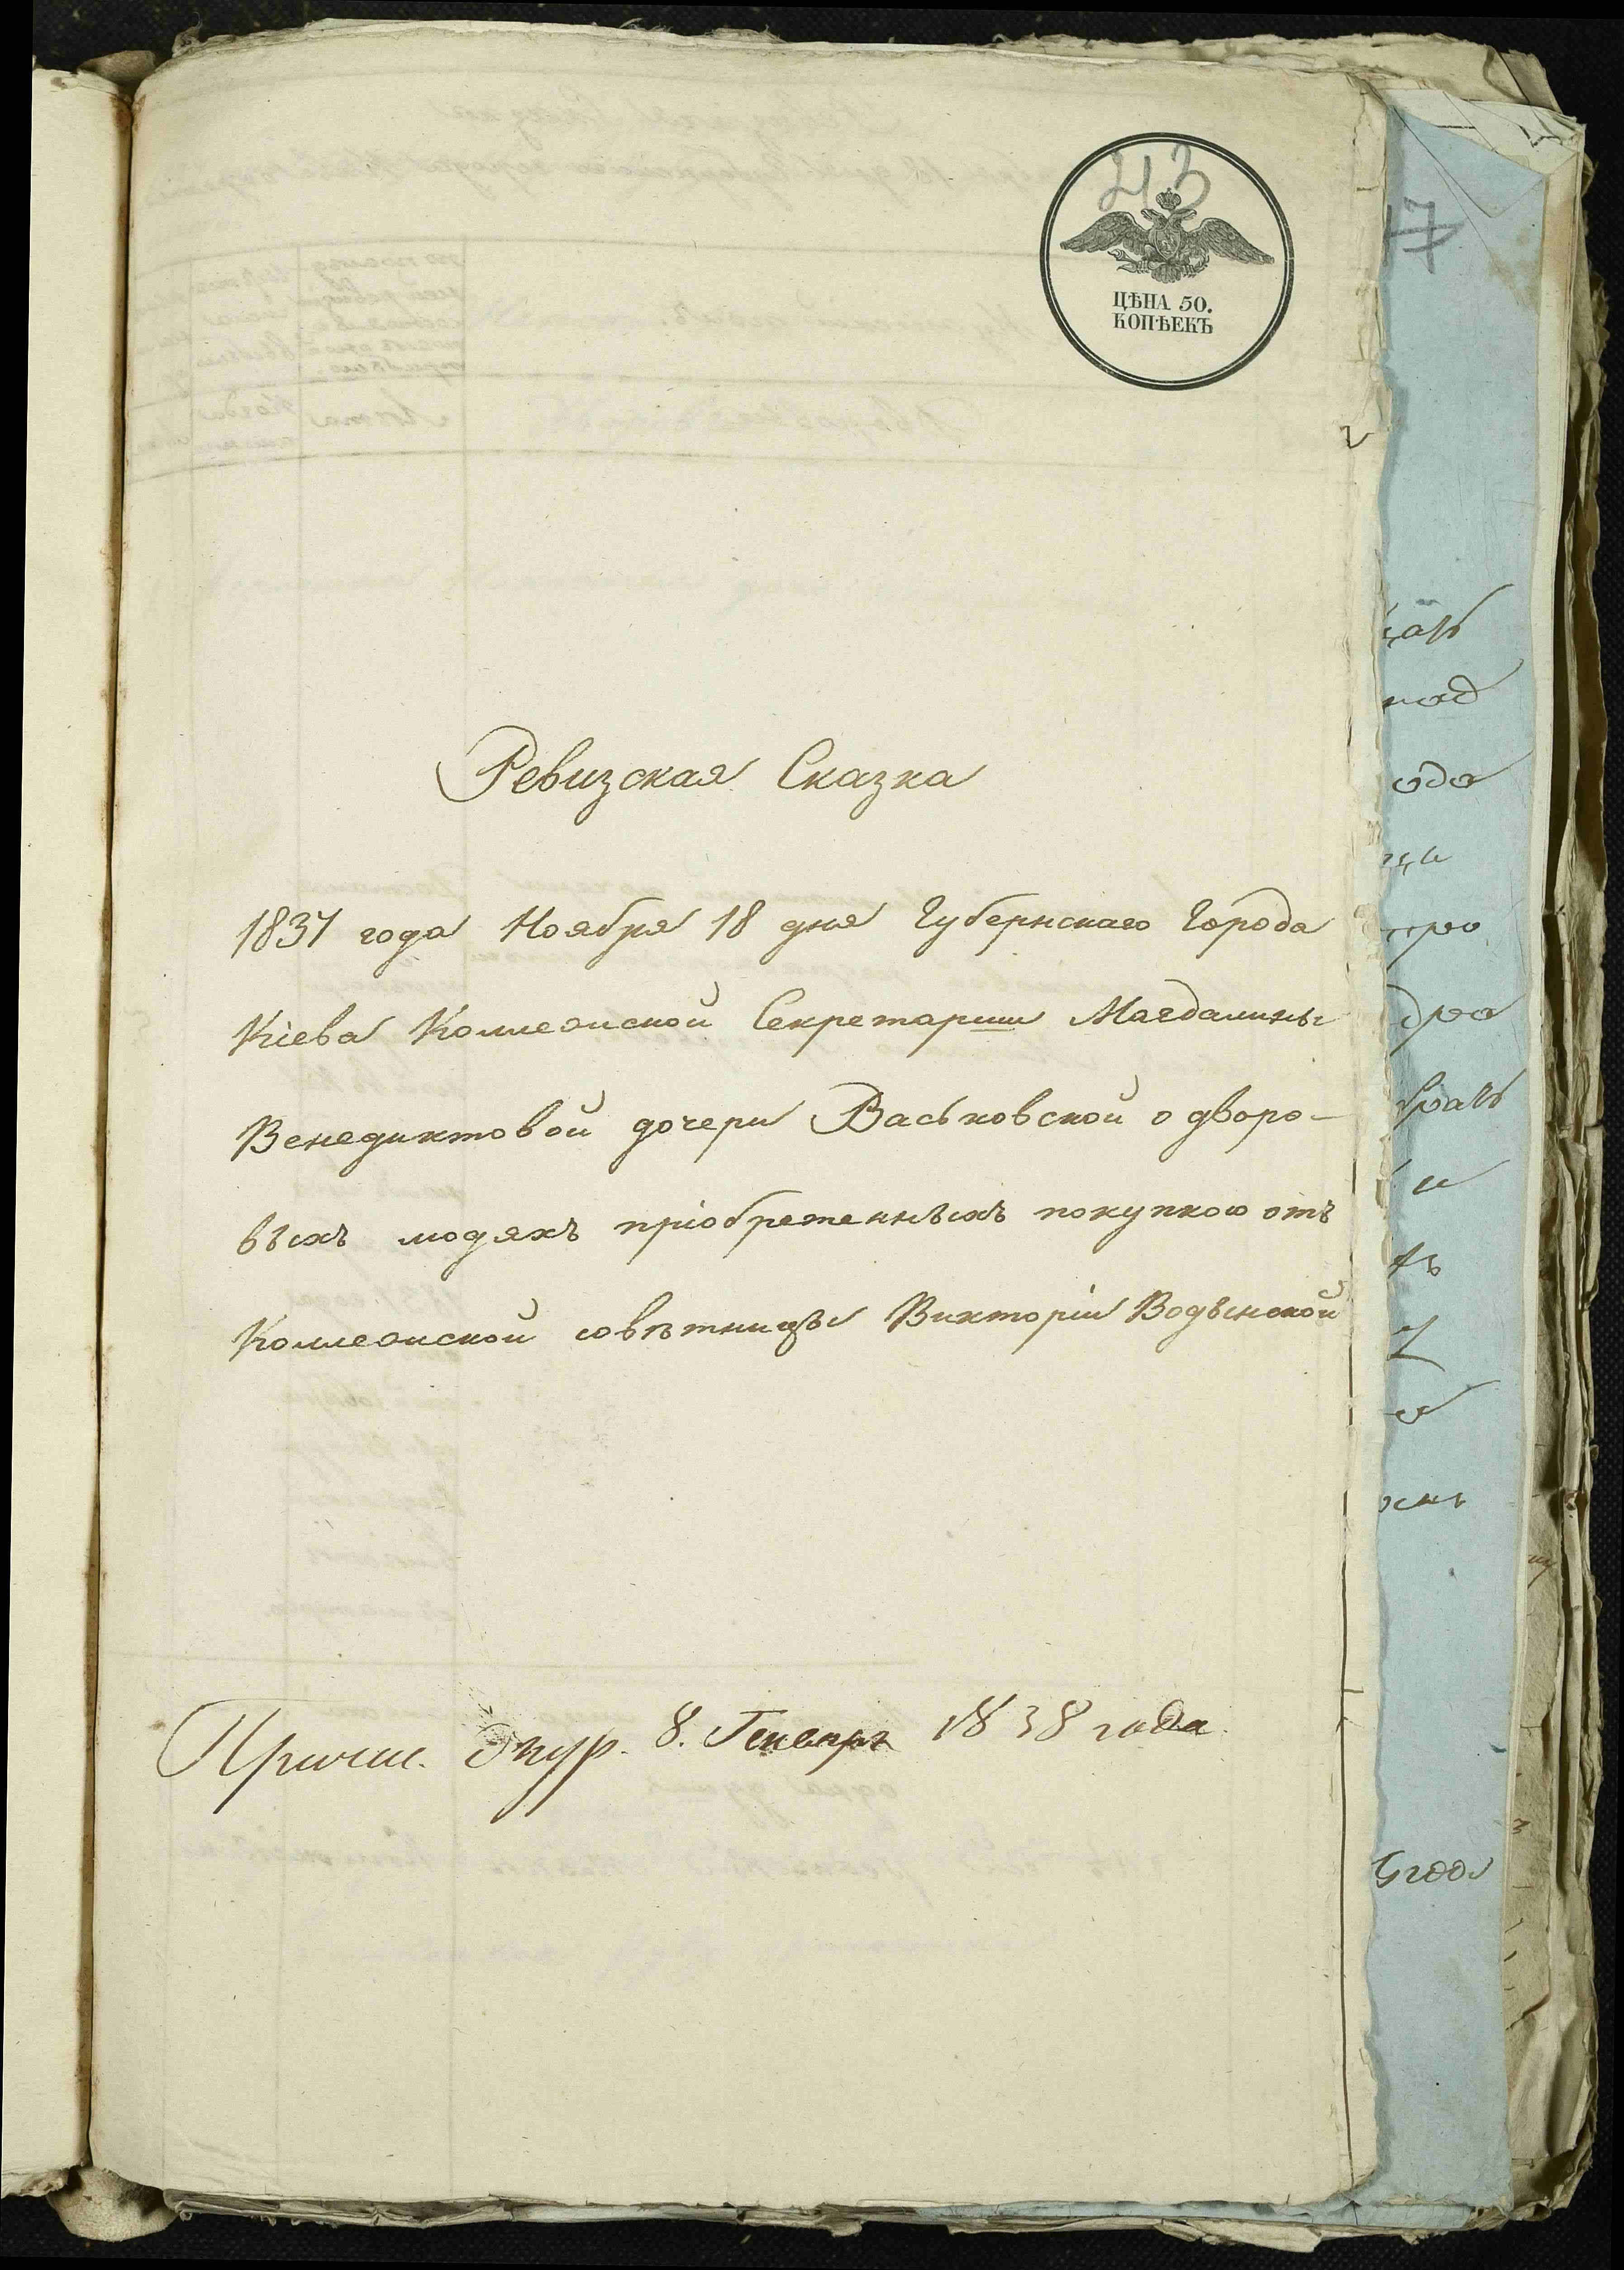 243
ЦѢНА 50.
КОПѢЕКЪ
Ревизская Сказка
1837 года Ноября 18 дня Губернскаго Города
Кіева Коллежской Секретарши Магдалины
Венедиктовой дочери Васьковской о дворо-
выхъ людяхъ пріобретенныхъ покупкою отъ
Коллежской совѣтницы Викторіи Водынской
8. Генваря 1838 года.
17